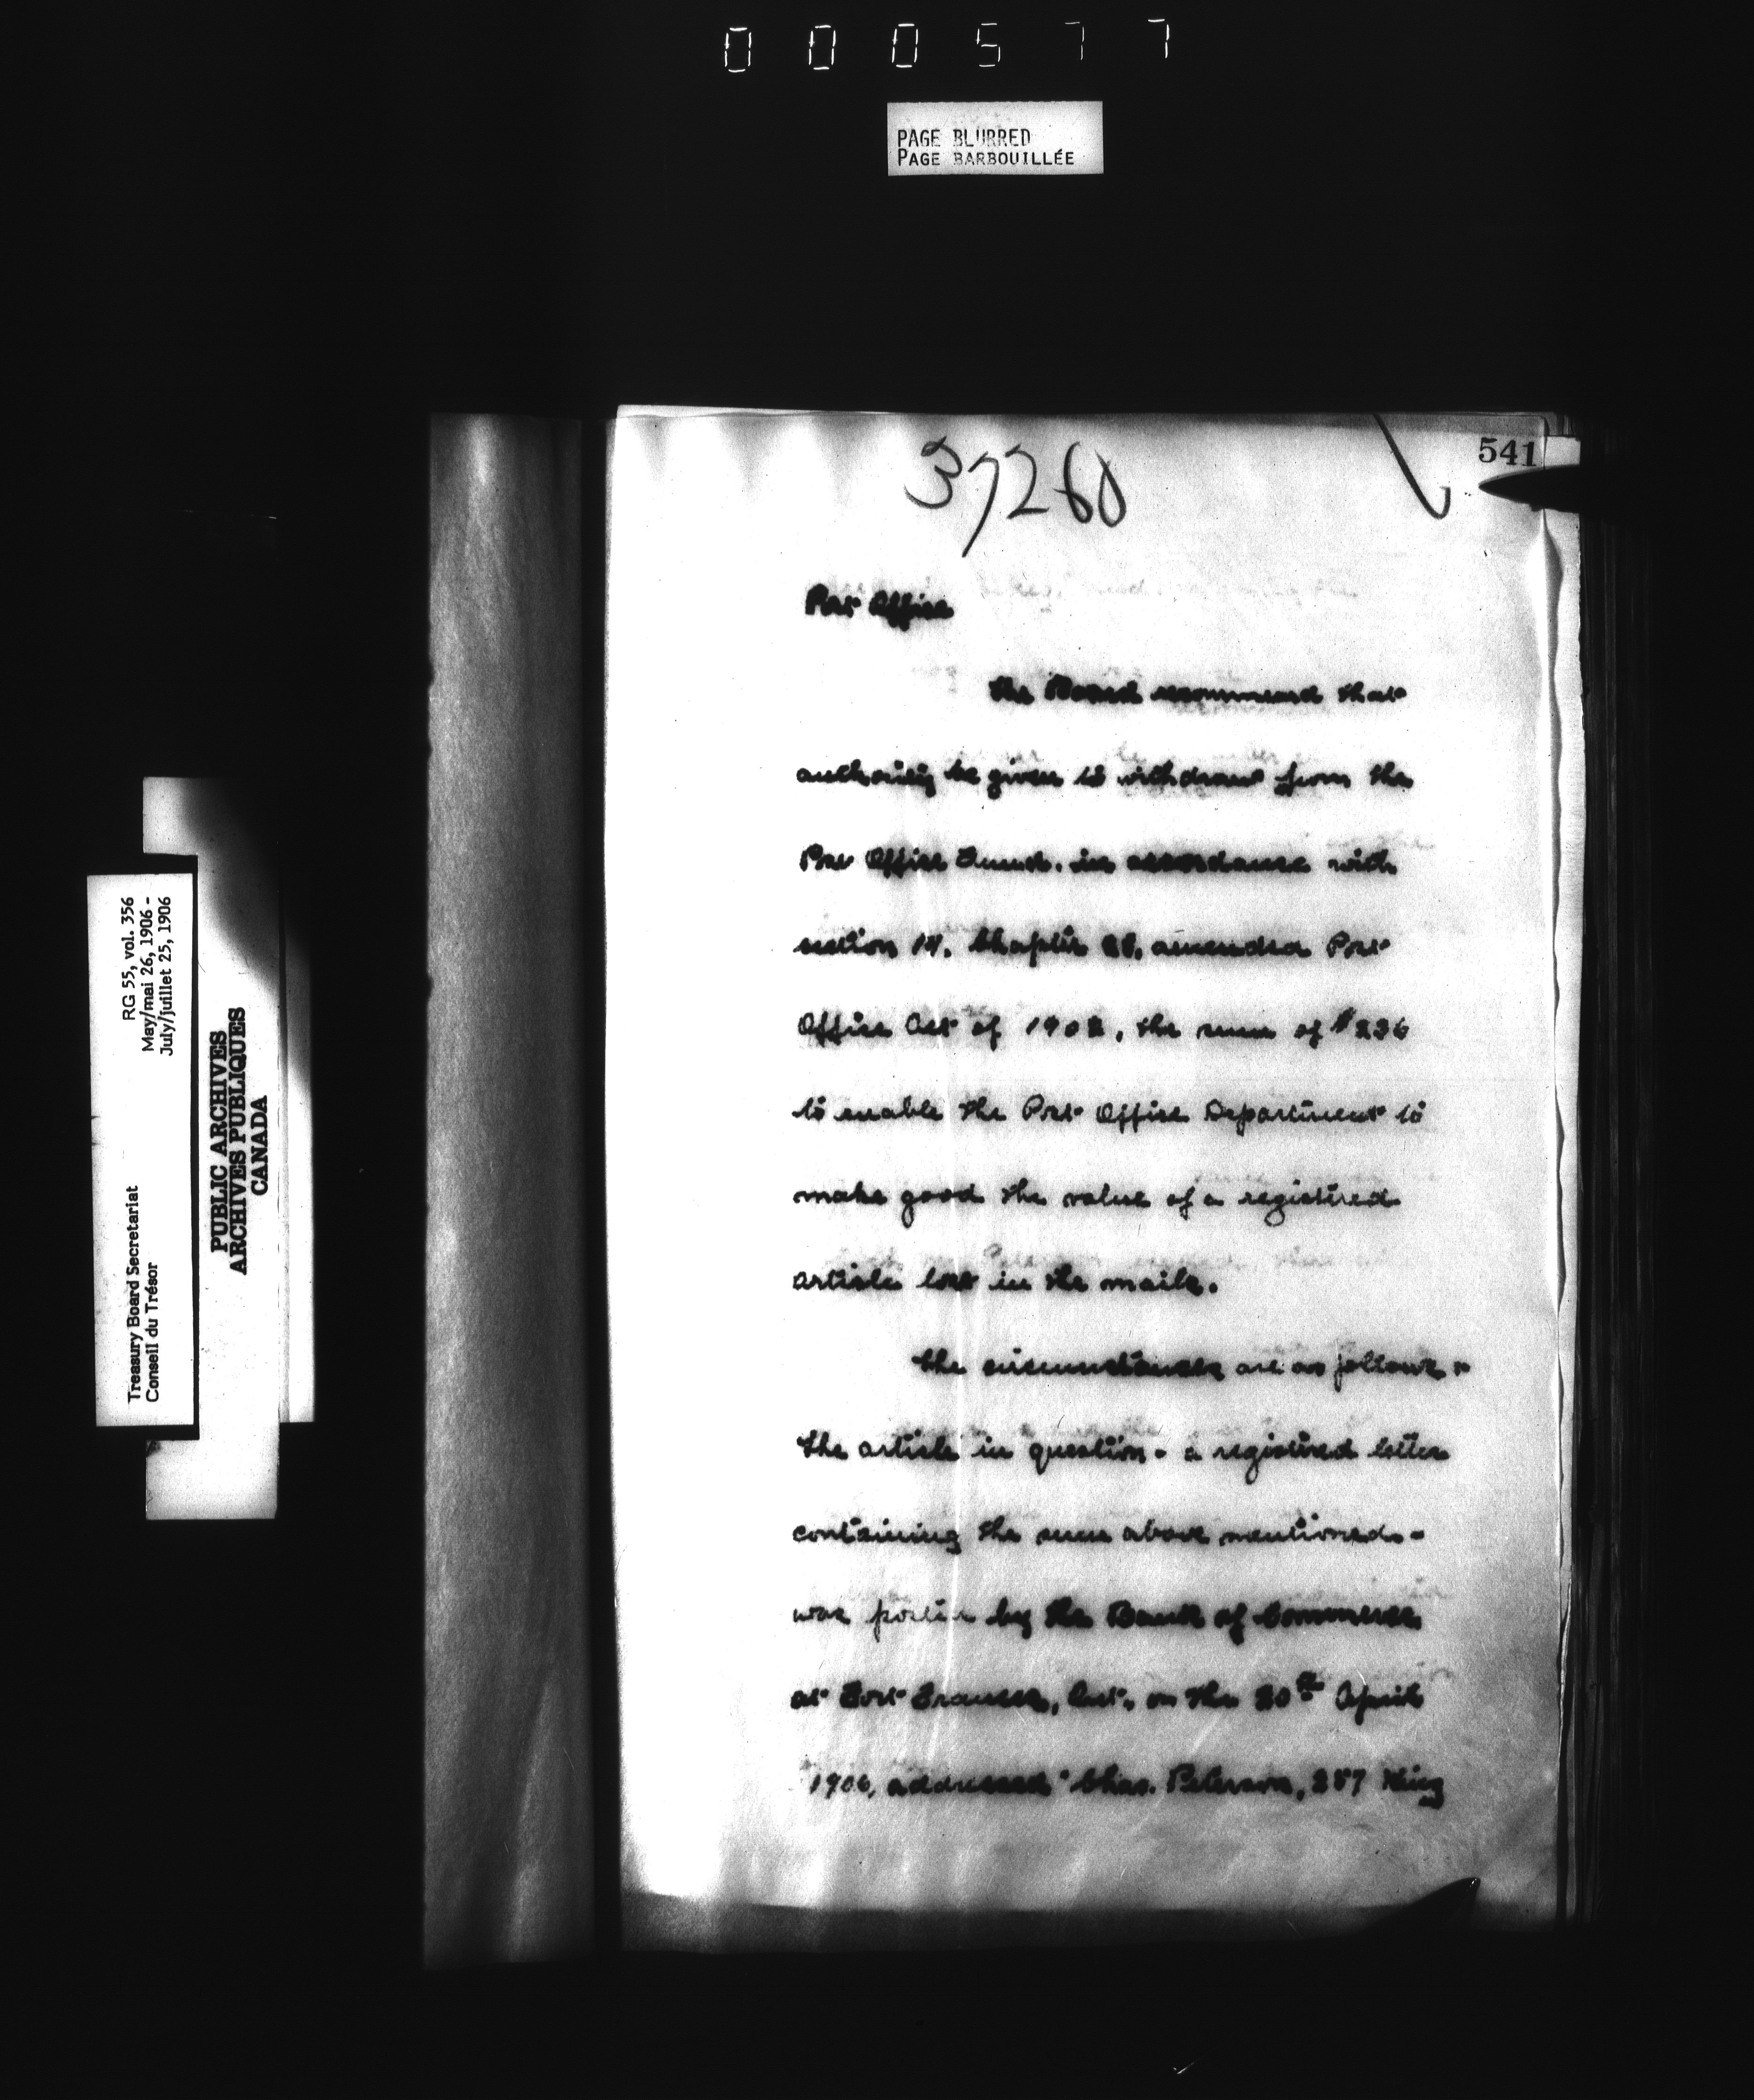 000577
PAGE BLURRED
PAGE BARBOUILLÉE
541
37260
Post Office
The Board recommend that
authority be given to withdraw from the
Post Office Fund, in accordance with
section 14, Chapter 28, amended Post
Office Act of 1902, the sum of $236
to enable the Post Office Department to
make good the value of a registered
article lost in the mails.
The circumstances are as follows:-
The article in question - a registered letter
containing the sum above mentioned -
was posted by the Bank of Commerce
at Fort Frances, Ont., on the 20th April
1906, addressed "Chas. Peterson, 257 King
RG 55, vol. 356
May/mai 26, 1906 -
July/juillet 25, 1906
Treasury Board Secretariat
Conseil du Trésor
PUBLIC ARCHIVES
ARCHIVES PUBLIQUES
CANADA